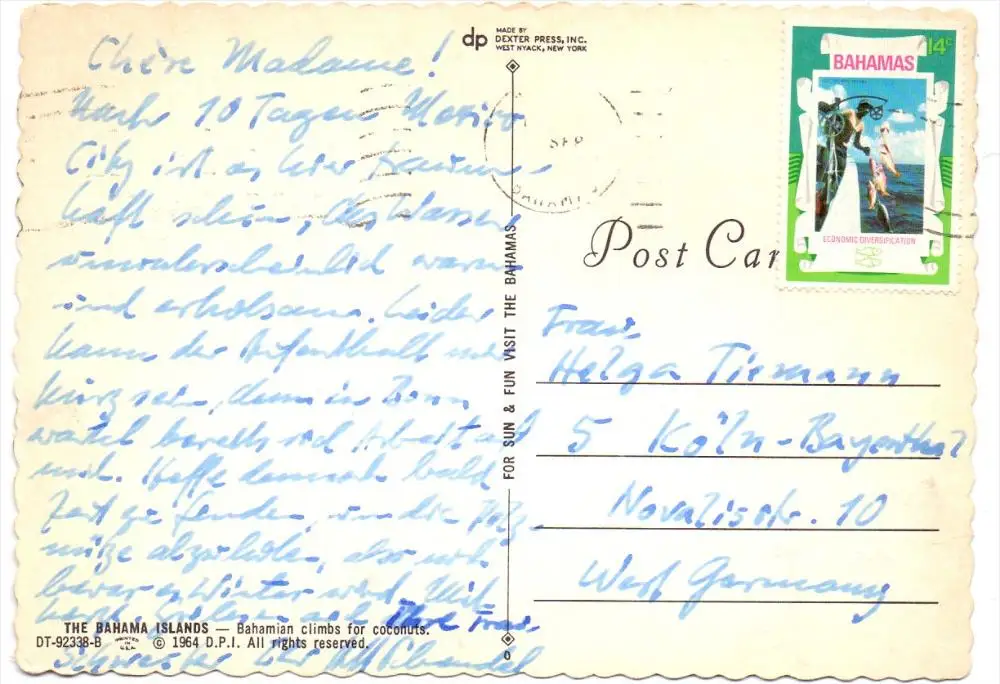 Chère Madame!
Nach 10 Tagen Mexico
City ist es hier traum-
haft schön, das Wasser
unwahrscheinlich warm
und erholsam. Leider
kann der Aufenthalt nur
kurz sein, denn in Bonn
wartet bereits viel Arbeit auf
mich. Hoffe demnach bald
Zeit zu finden, um die Pelz-
mütze abzuholen, also noch
bevor es Winter wird. Mit
herzl. Grüßen auch Ihre Frau
Schwester Ihr
THE BAHAMA ISLANDS — Bahamian climbs for coconuts.
DT-92338-B PRINTED IN U.S.A. © 1964 D.P.I. All rights reserved.
dp MADE BY
DEXTER PRESS, INC.
WEST NYACK, NEW YORK
FOR SUN & FUN VISIT THE BAHAMAS
SEP
BAHAMAS
14c
BAHAMAS
ECONOMIC DIVERSIFICATION
Post Car
Frau
Helga Tiemann
5 Köln-Bayenthal
Novalisstr. 10
West Germany